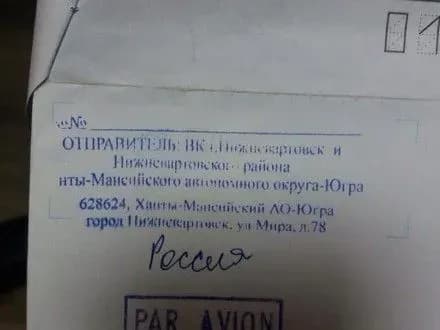 01
№
ОТПРАВИТЕЛЬ: ВК г.Нижневартовск и
Нижневартовског района
нты-Мансийского автономного округа-Югра
628624, Ханты-Мансийский АО-Югра
город Нижневартовск, ул Мира, д.78
Россия
PAR AVION